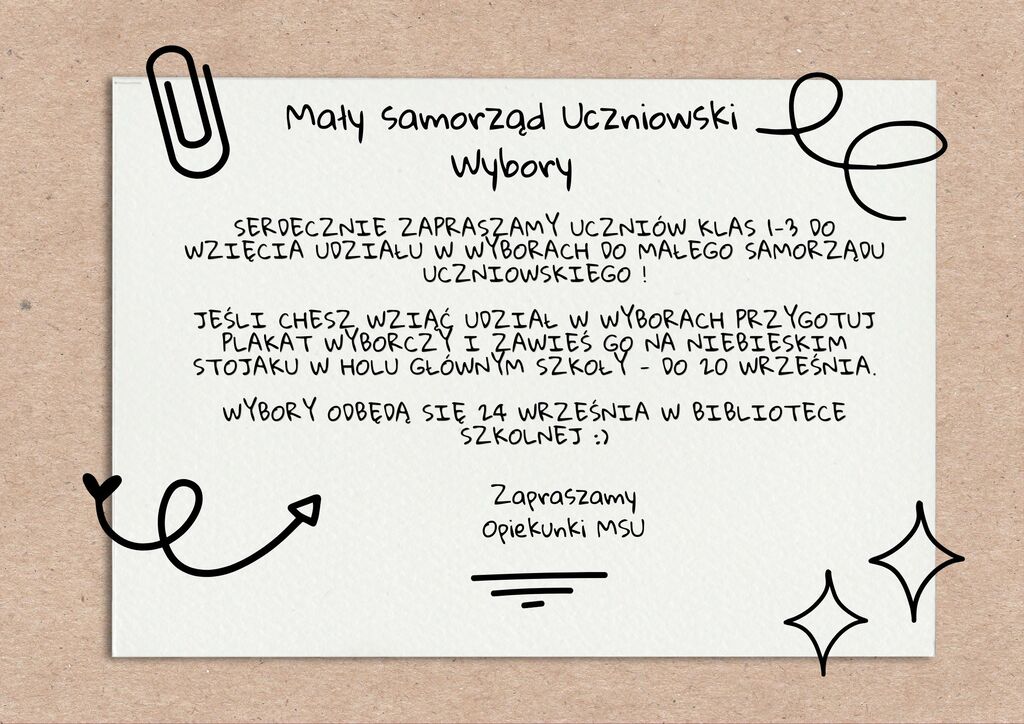 Mały Samorząd Uczniowski
Wybory
SERDECZNIE ZAPRASZAMY UCZNIÓW KLAS 1-3 DO
WZIĘCIA UDZIAŁU W WYBORACH DO MAŁEGO SAMORZĄDU
UCZNIOWSKIEGO !
JEŚLI CHESZ WZIĄĆ UDZIAŁ W WYBORACH PRZYGOTUJ
PLAKAT WYBORCZY I ZAWIEŚ GO NA NIEBIESKIM
STOJAKU W HOLU GŁÓWNYM SZKOŁY - DO 20 WRZEŚNIA.
WYBORY ODBĘDĄ SIĘ 24 WRZEŚNIA W BIBLIOTECE
SZKOLNEJ :)
Zapraszamy
Opiekunki MSU